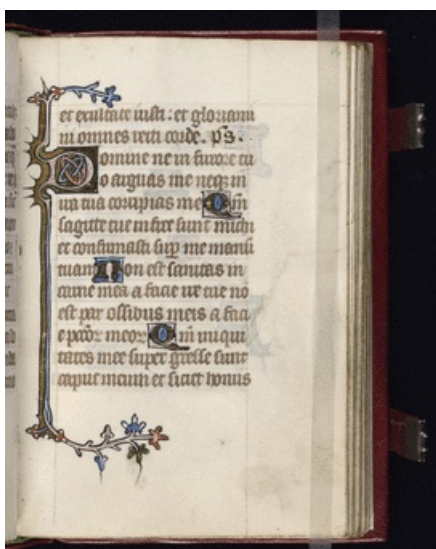 et exultate iusti: et gloriami
ni omnes recti corde. ps.
Domine ne in furore tu
o arguas me neqz in
ira tua corripias me Qm
sagitte tue infixe sunt michi
et confirmasti sup me manu
tuam Non est sanitas in
carne mea a facie ire tue no
est pax ossibus meis a faci
e pccor meor Qm iniqui
tates mee super gresse sunt
caput meum et sicut honus